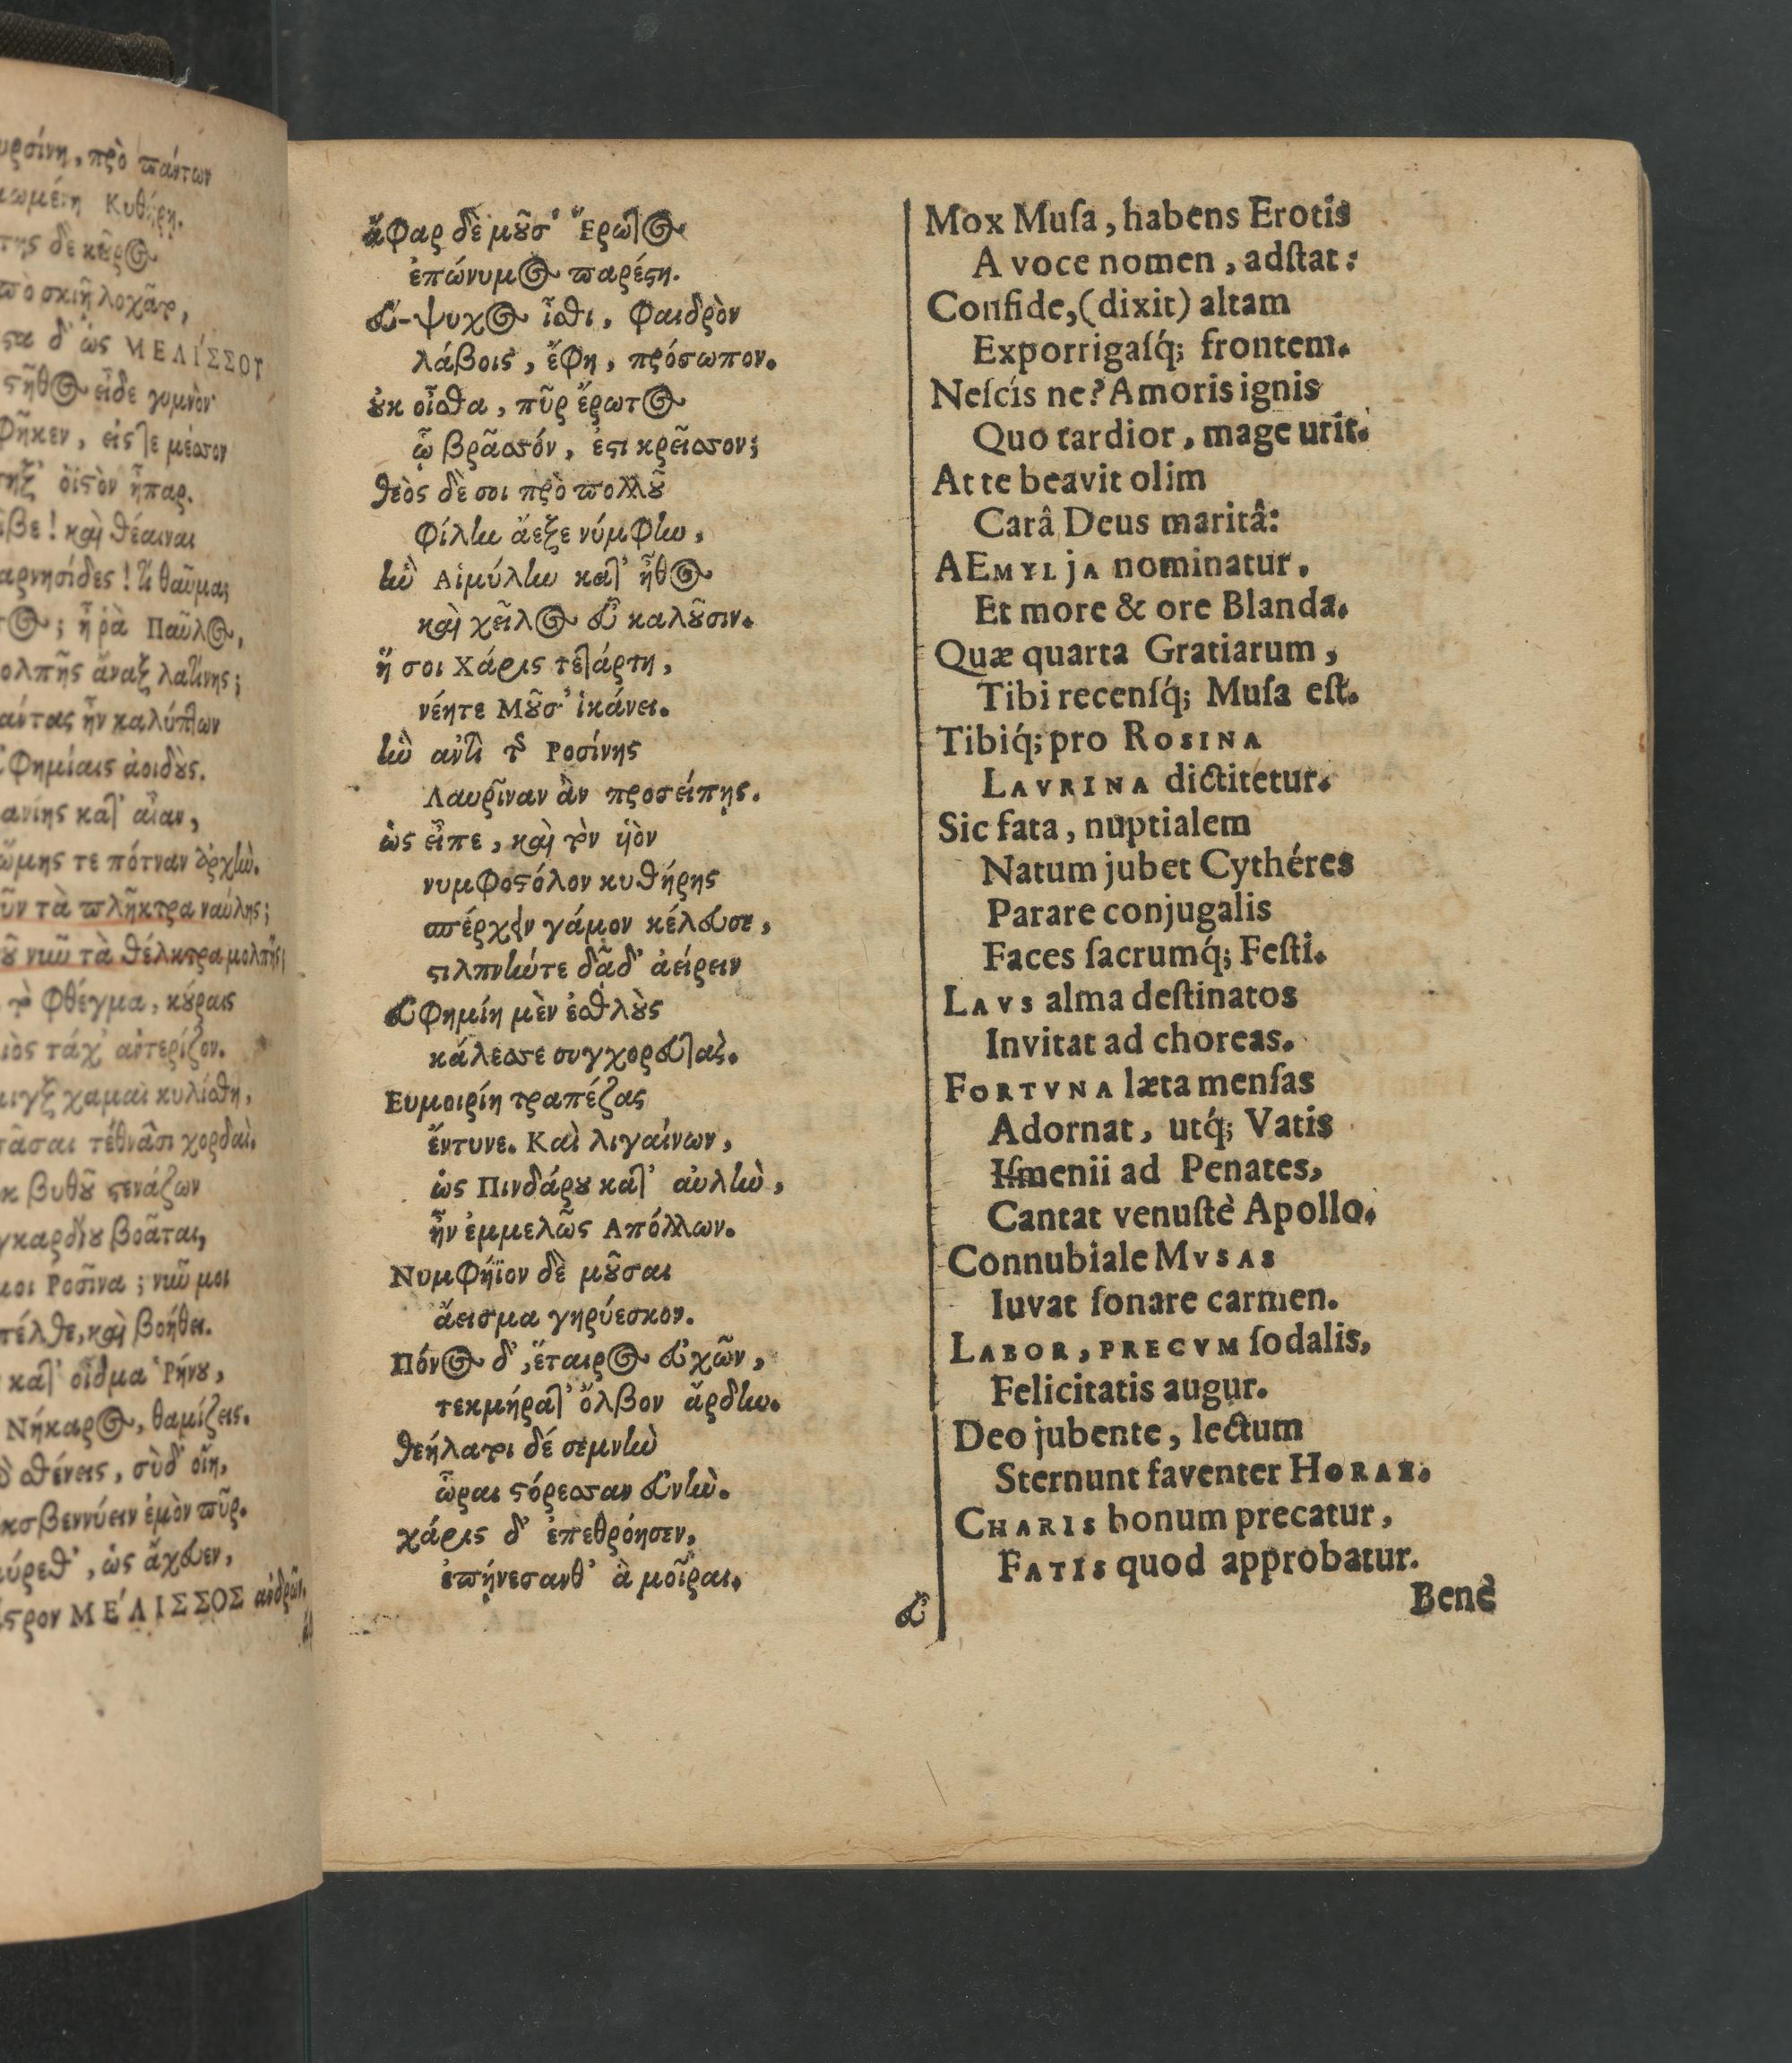 πρὸ πάντων
Κυθήρη.
ὡς ΜΕΛΙΣΣΟΥ
εἶδε γυμνὸν
ὀϊστὸν ἧπαρ.
καὶ θέαιναι
θαῦμα;
ἦ ῥὰ Παῦλος,
ἄναξ λατίνης;
ἦν καλύπτων
ἀοιδούς.
κατ' αἶαν,
τε πότναν ἀρχὴν.
τὰ πλῆκτρα ναύλης;
νῦν τὰ θέλκτρα μολπῆς;
φθέγμα, κούραις
τάχ' ἀστερίζον.
χαμαὶ κυλίσθη,
τέθνᾶσι χορδαὶ.
βυθοῦ στενάζων
βοᾶται,
μοι Ροσῖνα; νῦν μοι
καὶ βοήθει.
κατ' οἶδμα Ῥήνου,
Νήκαρος, θαμίζεις.
σθένεις, σὺ δ' οἴη,
ἐμὸν πῦρ.
ὡς ἄχευεν,
ΜΕΛΙΣΣΟΣ ἀνδρῶν,
ἄφαρ δὲ μοῦσ' Ἔρωτος
ἐπώνυμος παρέστη.
εὔ-ψυχος ἴσθι, φαιδρὸν
λάβοις, ἔφη, πρόσωπον.
οὐκ οἶσθα, πῦρ ἔρωτος
ᾧ βρᾶσσόν, ἐστι κρεῖσσον;
θεὸς δὲ σοι πρὸ πολλοῦ
φίλην ἄεξε νύμφην,
ἣν Αἰμύλην κατ' ἦθος
καὶ χεῖλος εὖ καλοῦσιν.
ἥ σοι Χάρις τετάρτη,
νέητε Μοῦσ' ἱκάνει.
ἣν αὐτὶ τῆς Ροσίνης
Λαυρῖναν ἂν προσείπῃς.
ὡς εἶπε, καὶ τὸν υἱὸν
νυμφοστόλον κυθήρης
σπέρχειν γάμον κέλευσε,
στιλπνήντε δᾷδ' ἀείρειν
εὐφημίη μὲν ἐσθλοὺς
κάλεσσε συγχορευτὰς.
Ευμοιρίη τραπέζας
ἔντυνε. Καὶ λιγαίνων,
ὡς Πινδάρου κατ' αὐλὴν,
ἦν ἐμμελῶς Απόλλων.
Νυμφήϊον δὲ μοῦσαι
ἄεισμα γηρύεσκον.
Πόνος δ', ἕταιρος εὐχῶν,
τεκμήρατ' ὄλβον ἄρδην.
θεήλατρι δέ σεμνὴν
ὧραι στόρεσσαν εὐνὴν.
χάρις δ' ἐπεθρόησεν,
ἐπῄνεσανθ' ἃ μοῖραι.
εὖ
Mox Muſa, habens Erotis
A voce nomen, adſtat:
Confide, (dixit) altam
Exporrigaſq́; frontem.
Neſcís ne? Amoris ignis
Quo tardior, mage urit.
At te beavit olim
Carâ Deus maritâ:
AEMYLjA nominatur.
Et more & ore Blanda.
Quæ quarta Gratiarum,
Tibi recenſq́; Muſa eſt.
Tibiq́; pro ROSINA
LAVRINA dictitetur.
Sic fata, nuptialem
Natum jubet Cythéres
Parare conjugalis
Faces ſacrumq́; Feſti.
LAVS alma deſtinatos
Invitat ad choreas.
FORTVNA læta menſas
Adornat, utq́; Vatis
Iſmenii ad Penates,
Cantat venuſtè Apollo.
Connubiale MVSAS
Iuvat ſonare carmen.
LABOR, PRECVM ſodalis,
Felicitatis augur.
Deo jubente, lectum
Sternunt faventer HORAE.
CHARIS bonum precatur,
FATIS quod approbatur.
Benè